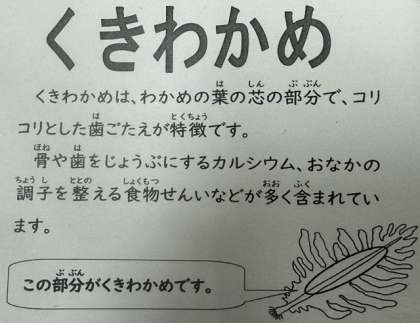 くきわかめ
くきわかめは、わかめの葉の芯の部分で、コリ
コリとした歯ごたえが特徴です。
骨や歯をじょうぶにするカルシウム、おなかの
調子を整える食物せんいなどが多く含まれてい
ます。
この部分がくきわかめです。